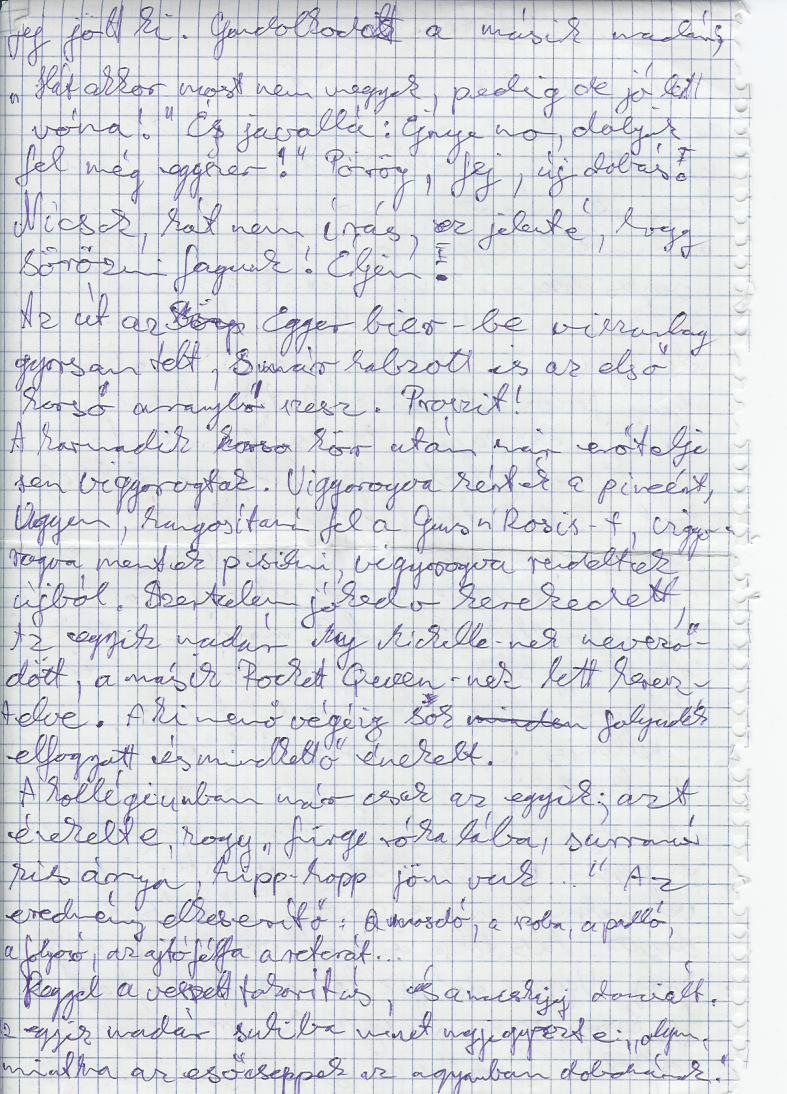 fej jött ki. Gondolkodott a másik madár,
"Hát akkor most nem megyek, pedig de jó lett
vóna!" És javallá: Ejnye no, dobjuk
fel még egyszer!" Pörög, fej, új dobás!
Nicsak, hát nem írás, ez jelenté, hogy
sörözni fogunk! Éljen!
Az út az Egger bier-be viszonylag
gyorsan telt, s már habzott is az első
korsó aranyló szesz. Prószit!
A harmadik kör után már erőtelje
sen vigyorogtak. Vigyorogva kérték a pincért,
ugyan, hangosítani fel a Guns n' Rosis-t, vigyo-
rogva mentek pisilni, vigyorogva rendeltek
újból. Szertelen jókedv kerekedett,
Az egyik madár My Michelle-nek nevező-
dött, a másik Rocket Queen-nek lett keresz-
telve. A kimenő végéig sok folyadék
elfogyott és mindkettő énekelt.
A kollégiumban már csak az egyik; azt
énekelte, hogy "fürge róka lába, surranó
kis árnya, hipp-hopp jön vuk ..." Az
eredmény elkeserítő: A mosdó, a szoba, a padló,
a folyosó, az ajtófélfa
Reggel a veszett takarítás, és
egyik madár suliba ment "olyan,
mintha az esőcseppek az agyamban dobolnának."